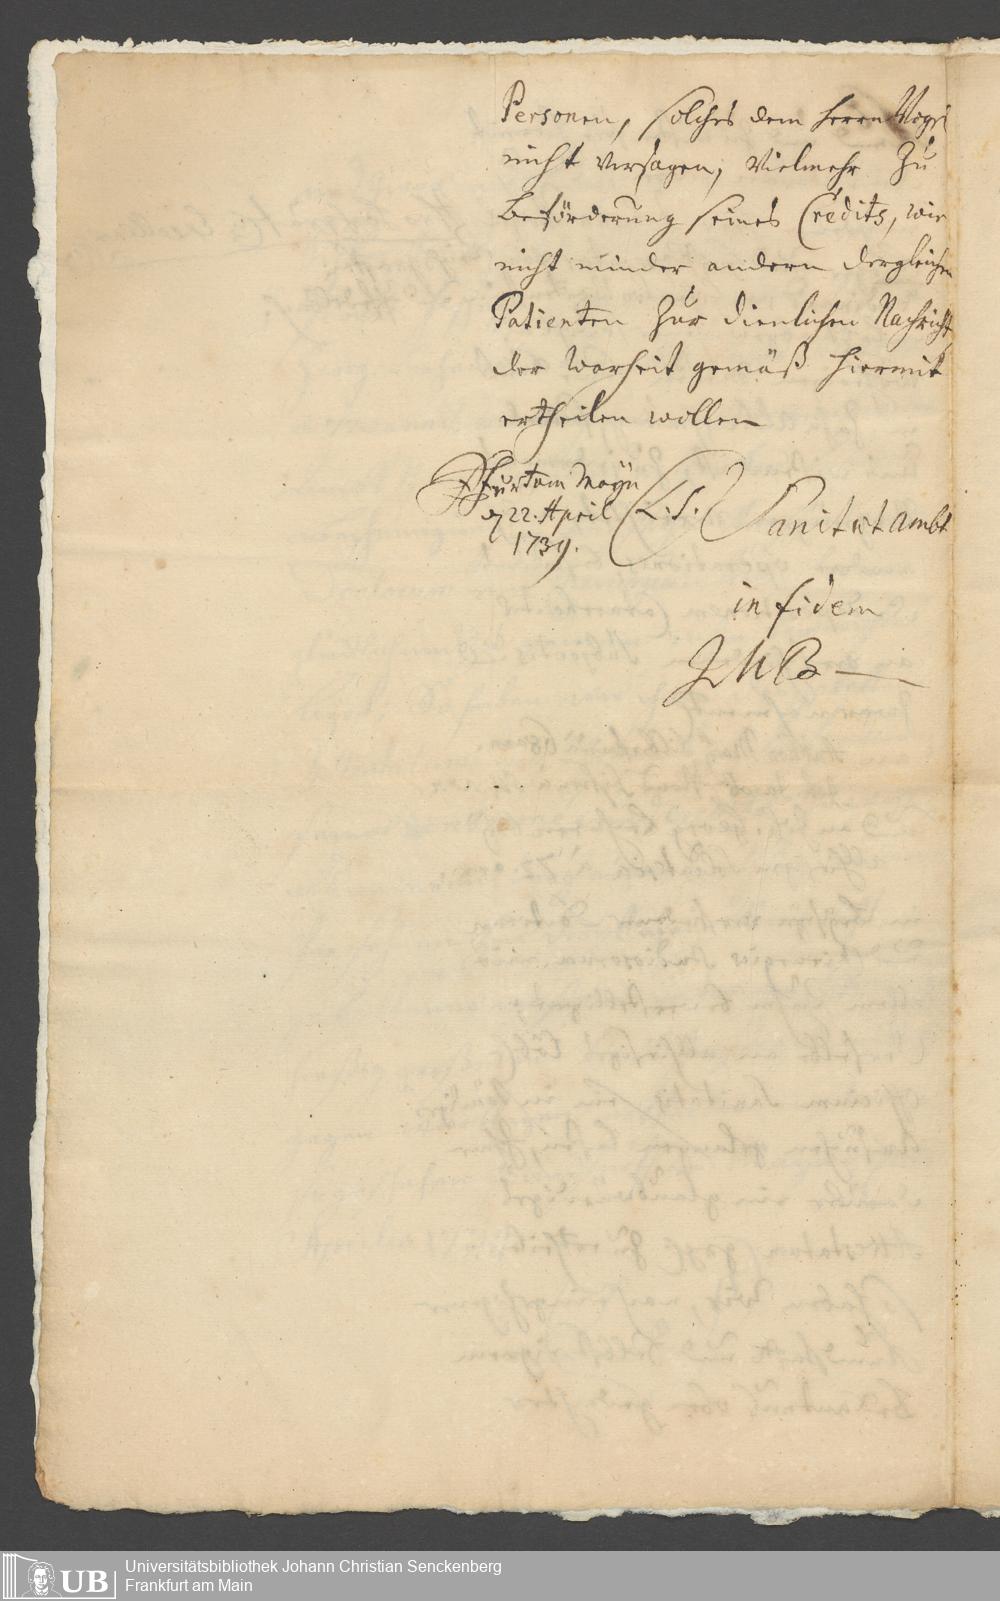 Personen, solches dem Herrn Vogel
nicht versagen, Vielmehr Zu
Beförderung seines Credits, wie
nicht minder andern dergleichen
Patienten Zur dienlichen Nachricht,
der Warheit gemäß hiermit
ertheilen wollen
Ffurt am Mayn
d 22. April
1739.
(L. S.)
Sanitætambt
in fidem
JMB
Universitätsbibliothek Johann Christian Senckenberg
Frankfurt am Main
UB